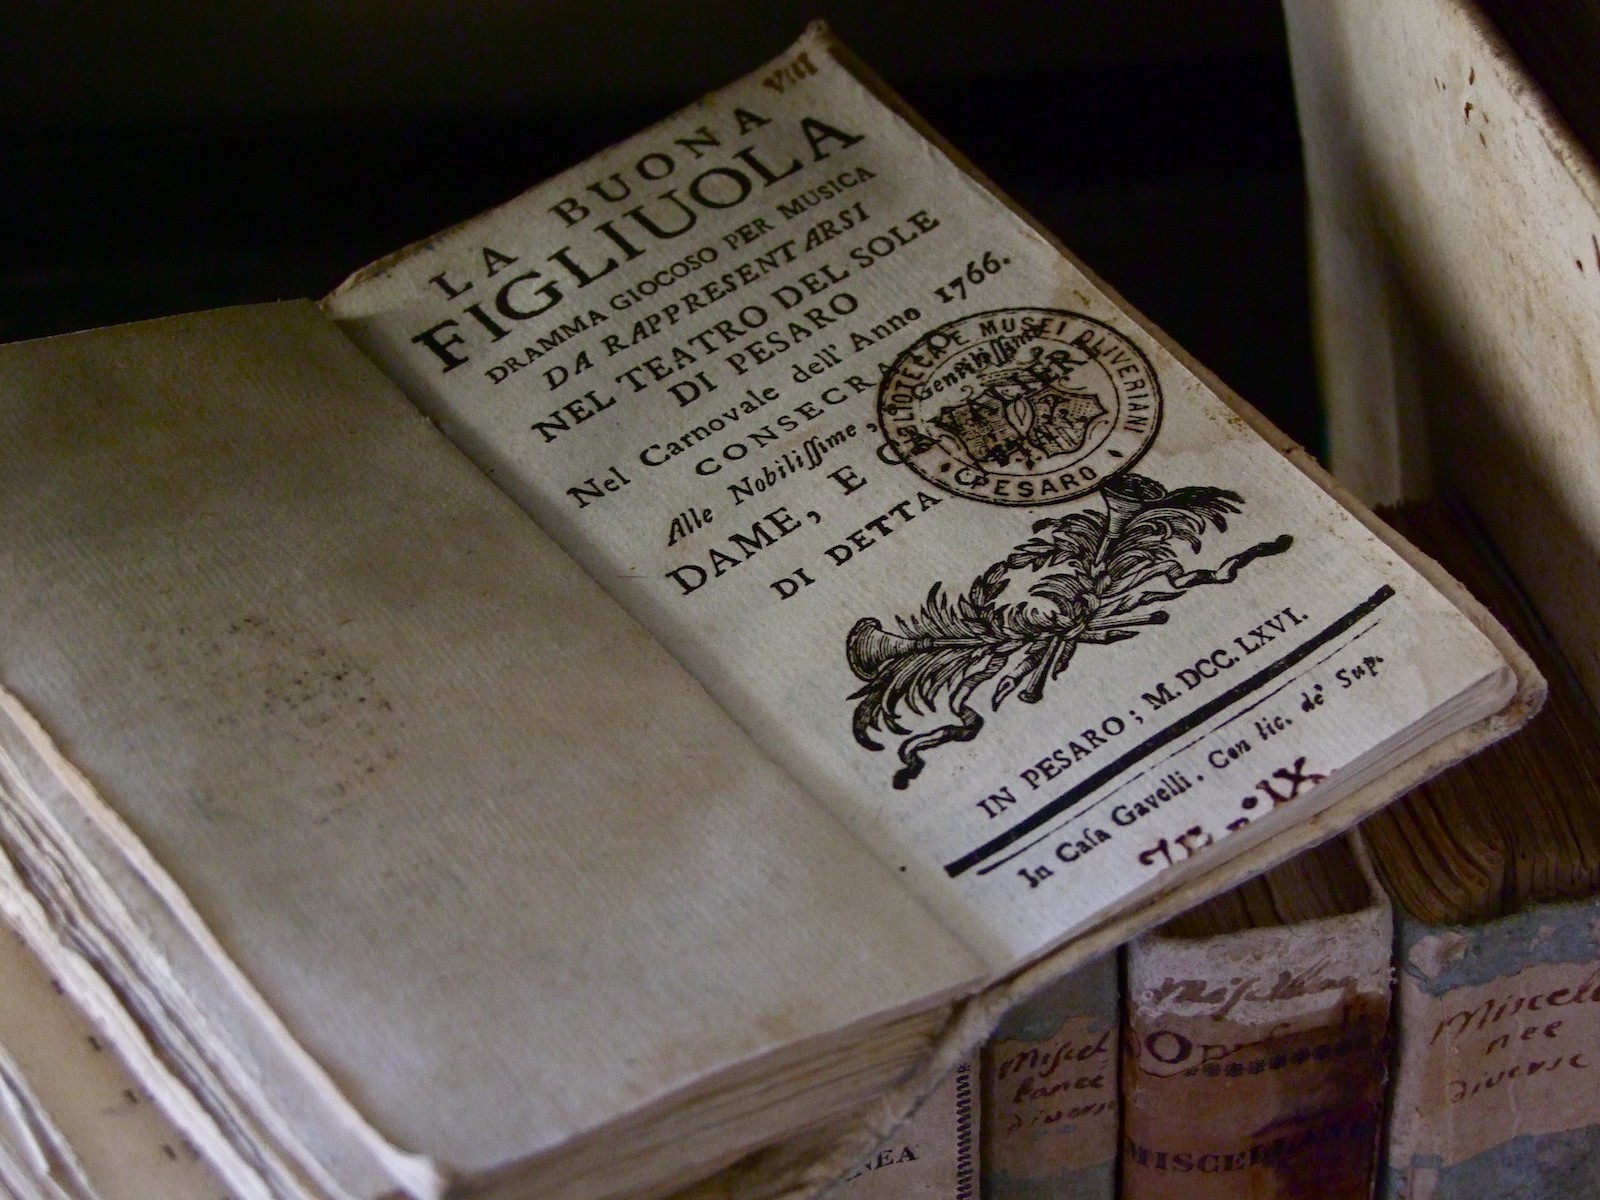 VIII
LA BUONA
FIGLIUOLA
DRAMMA GIOCOSO PER MUSICA
DA RAPPRESENTARSI
NEL TEATRO DEL SOLE
DI PESARO
Nel Carnovale dell' Anno 1766.
CONSECRATO
Alle Nobiliſſime, Gentiliſſime
DAME, E CAVALIERI
DI DETTA
BIBLIOTECA E MUSEI OLIVERIANI
PESARO
IN PESARO; M. DCC. LXVI.
In Caſa Gavelli. Con lic. de' Sup.
Miscel
lanee
diverse
MISCELLANEA
Miscel
nee
diverse
NEA